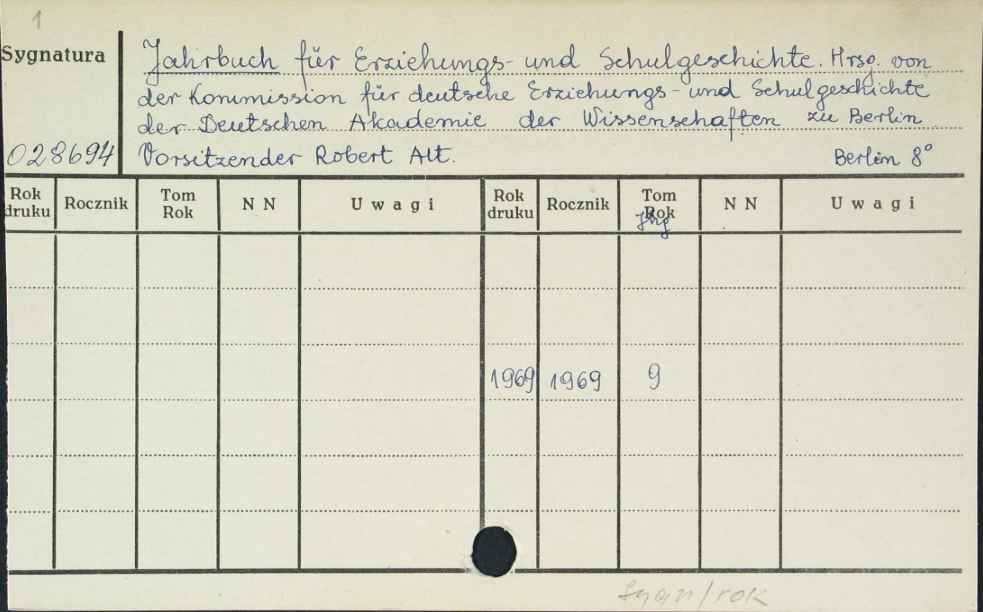 1
Sygnatura
Jahrbuch für Erziehungs- und Schulgeschichte. Hrsg. von
der Kommission für deutsche Erziehungs- und Schulgeschichte
der Deutschen Akademie der Wissenschaften zu Berlin
028694 Vorsitzender Robert Alt. Berlin 8°
Rok druku Rocznik Tom Rok NN Uwagi Rok druku Rocznik Tom Rok NN Uwagi
Jhg
1969 1969 9
sygn/rok